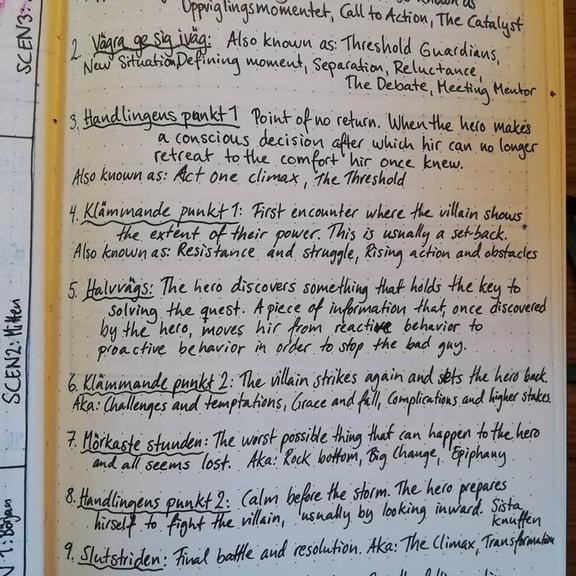 Uppviglingsmomentet, Call to Action, The Catalyst
2. Vägra ge sig iväg: Also known as: Threshold Guardians,
New Situation Defining moment, Separation, Reluctance,
The Debate, Meeting Mentor
3. Handlingens punkt 1 Point of no return. When the hero makes
a conscious decision after which hir can no longer
retreat to the comfort hir once knew.
Also known as: Act one climax, The Threshold
4. Klämmande punkt 1: First encounter where the villain shows
the extent of their power. This is usually a set-back.
Also known as: Resistance and struggle, Rising action and obstacles
5. Halvvägs: The hero discovers something that holds the key to
solving the quest. A piece of information that, once discovered
by the hero, moves hir from reactive behavior to
proactive behavior in order to stop the bad guy.
6. Klämmande punkt 2: The villain strikes again and sets the hero back.
Aka: Challenges and temptations, Grace and fall, Complications and higher stakes.
7. Mörkaste stunden: The worst possible thing that can happen to the hero
and all seems lost. Aka: Rock bottom, Big Change, Epiphany
8. Handlingens punkt 2: Calm before the storm. The hero prepares
hirself to fight the villain, usually by looking inward. Sista
knuffen
9. Slutstriden: Final battle and resolution. Aka: The Climax, Transformation
SCEN 3:
SCEN 2: Mitten
N 1: Början